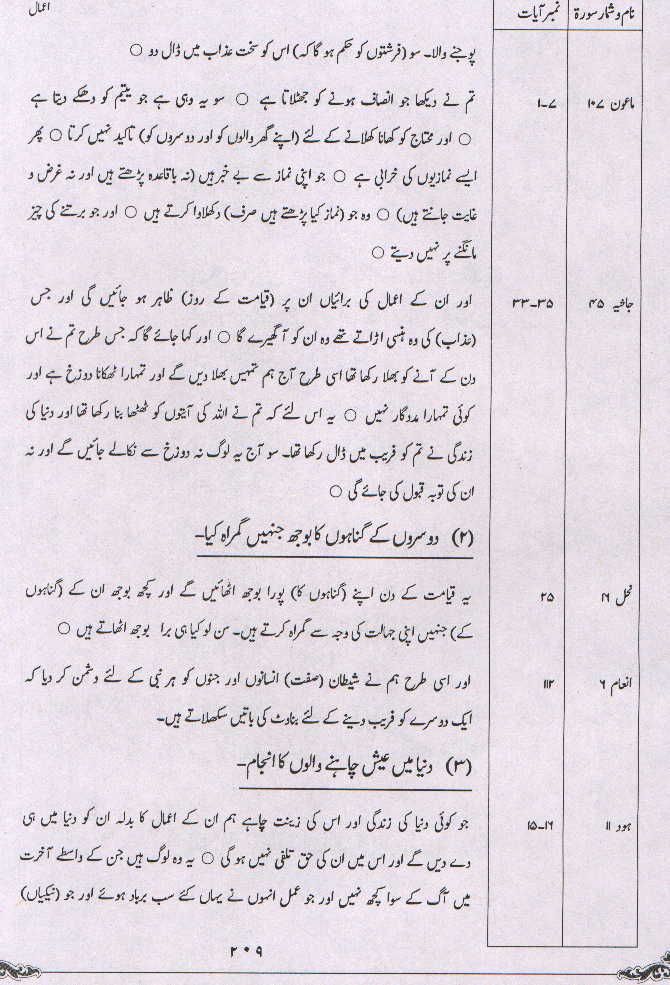 نام و شمار سورۃ نمبر آیات اعمال
پوجنے والا۔ سو (فرشتوں کو حکم ہو گا کہ) اس کو سخت عذاب میں ڈال دو ○
ماعون ۱۰۷ ۱۔۷ تم نے دیکھا جو انصاف ہونے کو جھٹلاتا ہے ○ سو یہ وہی ہے جو یتیم کو دھکے دیتا ہے
○ اور محتاج کو کھانا کھلانے کے لئے (اپنے گھر والوں کو اور دوسروں کو) تاکید نہیں کرتا ○ پھر
ایسے نمازیوں کی خرابی ہے ○ جو اپنی نماز سے بے خبر ہیں (نہ باقاعدہ پڑھتے ہیں اور نہ غرض و
غایت جانتے ہیں) ○ وہ جو (نماز کیا پڑھتے ہیں صرف) دکھلاوا کرتے ہیں ○ اور جو برتنے کی چیز
مانگنے پر نہیں دیتے ○
جاثیہ ۴۵ ۳۳۔۳۵ اور ان کے اعمال کی برائیاں ان پر (قیامت کے روز) ظاہر ہو جائیں گی اور جس
(عذاب) کی وہ ہنسی اڑاتے تھے وہ ان کو آ گھیرے گا ○ اور کہا جائے گا کہ جس طرح تم نے اس
دن کے آنے کو بھلا رکھا تھا اسی طرح آج ہم تمہیں بھلا دیں گے اور تمہارا ٹھکانا دوزخ ہے اور
کوئی تمہارا مددگار نہیں ○ یہ اس لئے کہ تم نے اللہ کی آیتوں کو ٹھٹھا بنا رکھا تھا اور دنیا کی
زندگی نے تم کو فریب میں ڈال رکھا تھا۔ سو آج یہ لوگ نہ دوزخ سے نکالے جائیں گے اور نہ
ان کی توبہ قبول کی جائے گی ○
(۲) دوسروں کے گناہوں کا بوجھ جنہیں گمراہ کیا۔
نحل ۱۶ ۲۵ یہ قیامت کے دن اپنے (گناہوں کا) پورا بوجھ اٹھائیں گے اور کچھ بوجھ ان کے (گناہوں
کے) جنہیں اپنی جہالت کی وجہ سے گمراہ کرتے ہیں۔ سن لو کیا ہی برا بوجھ اٹھاتے ہیں ○
انعام ۶ ۱۱۲ اور اسی طرح ہم نے شیطان (صفت) انسانوں اور جنوں کو ہر نبی کے لئے دشمن کر دیا کہ
ایک دوسرے کو فریب دینے کے لئے بناوٹ کی باتیں سکھلاتے ہیں۔
(۳) دنیا میں عیش چاہنے والوں کا انجام۔
ہود ۱۱ ۱۵۔۱۶ جو کوئی دنیا کی زندگی اور اس کی زینت چاہے ہم ان کے اعمال کا بدلہ ان کو دنیا میں ہی
دے دیں گے اور اس میں ان کی حق تلفی نہیں ہو گی ○ یہ وہ لوگ ہیں جن کے واسطے آخرت
میں آگ کے سوا کچھ نہیں اور جو عمل انہوں نے یہاں کئے سب برباد ہوئے اور جو (نیکیاں)
۲۰۹